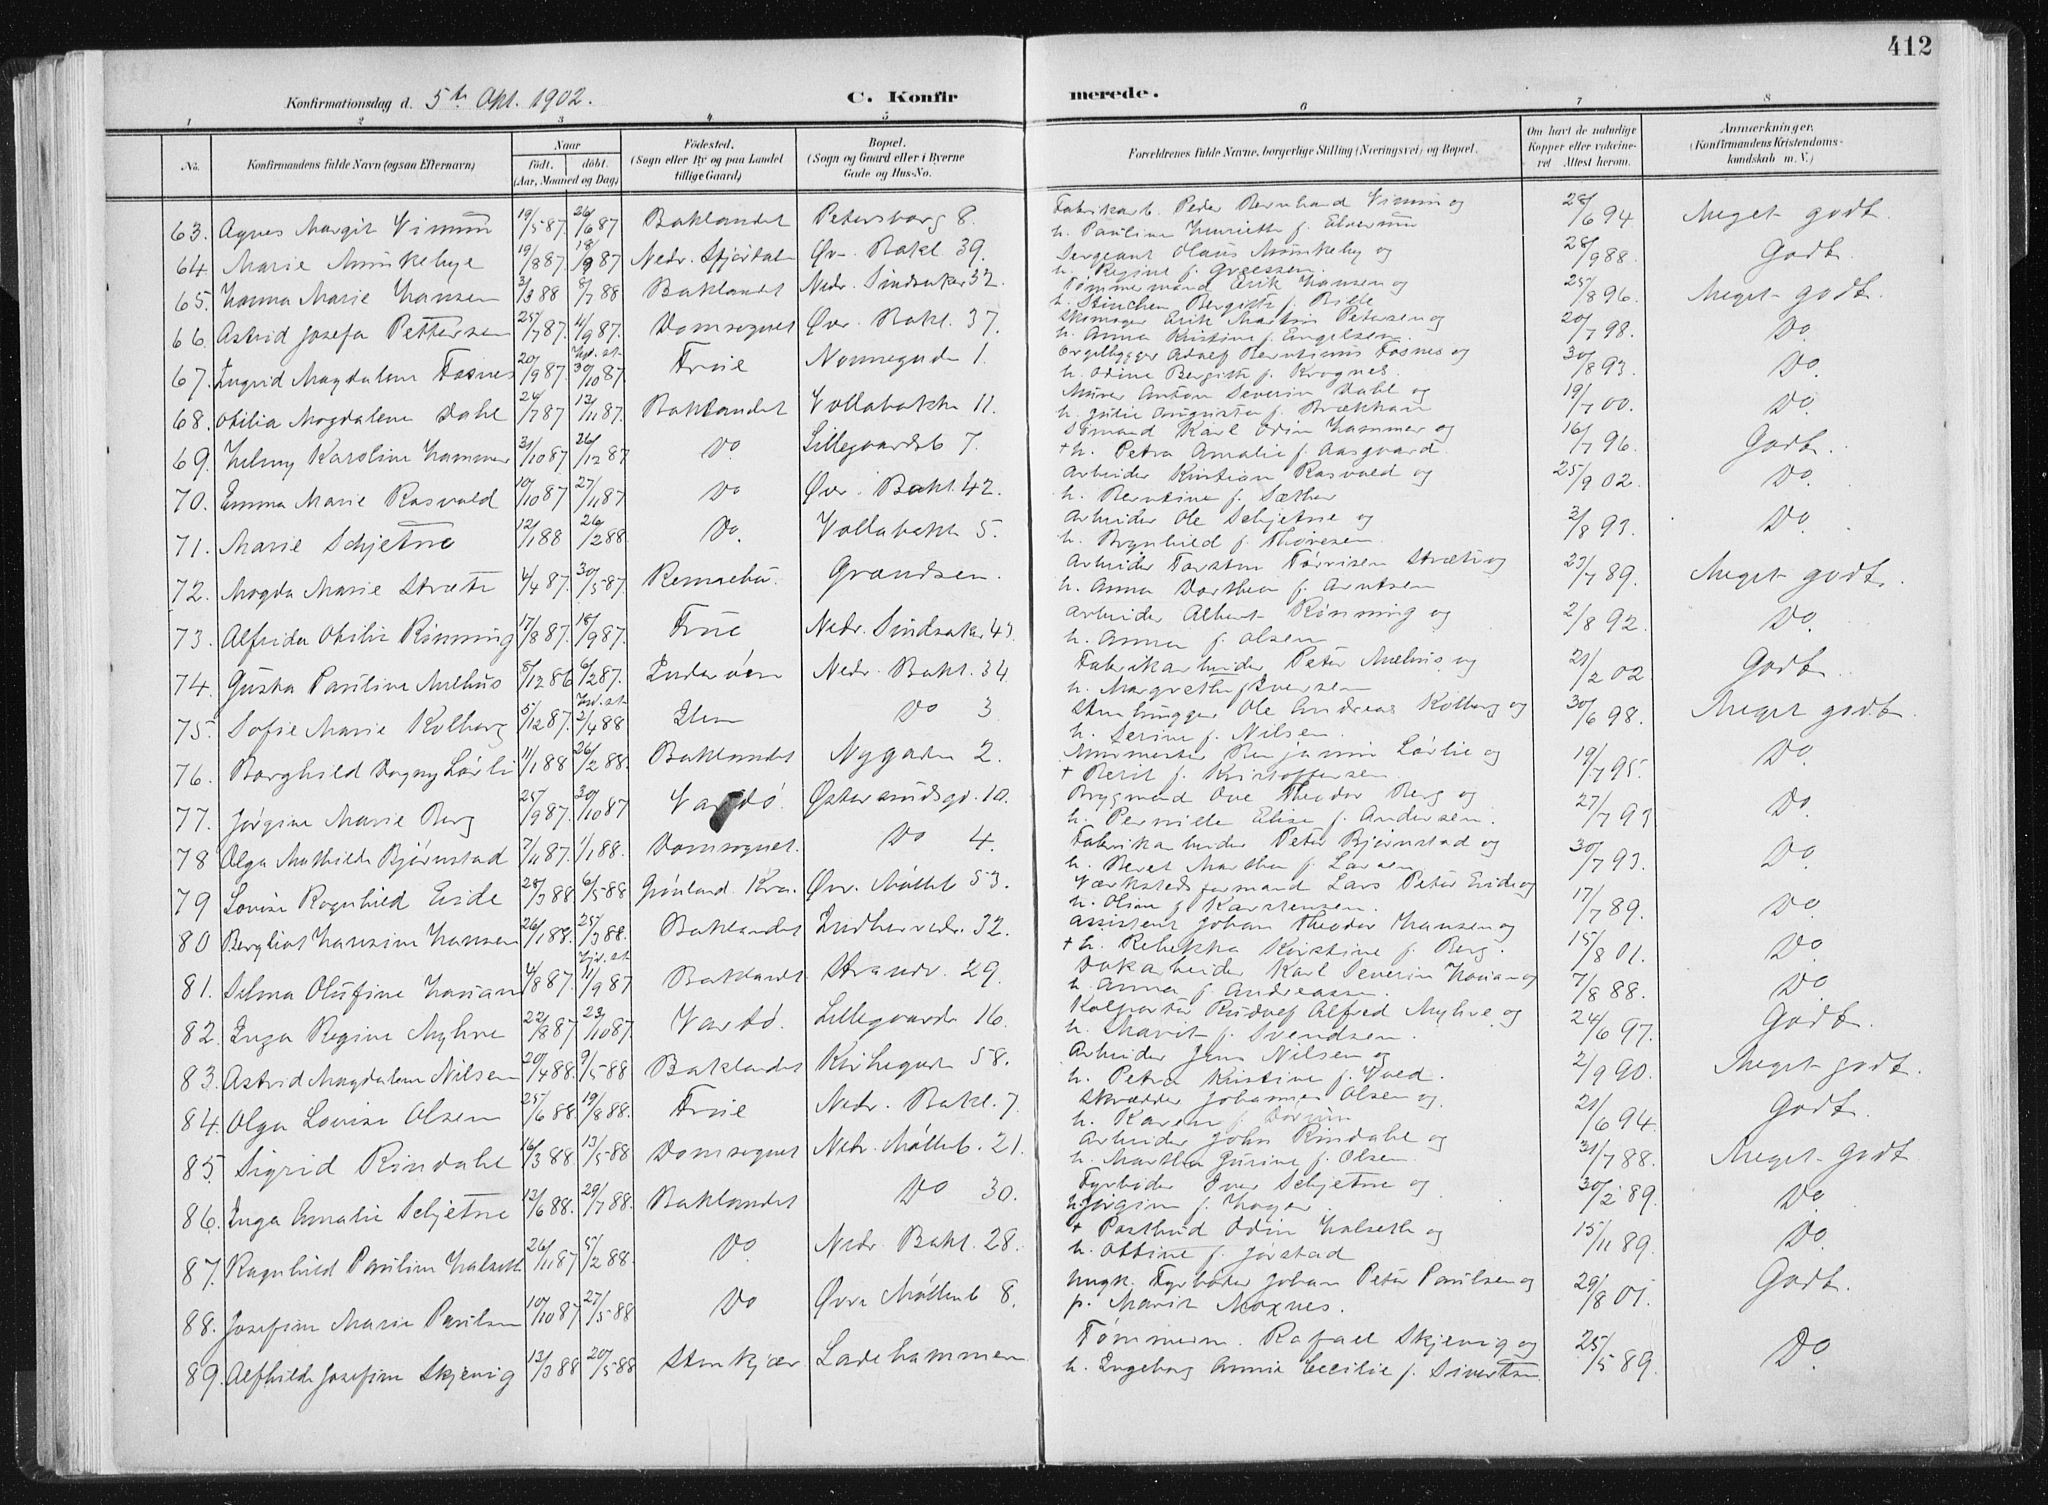 412
Konfirmationsdag d. 5te Okt. 1902. C. Konfirmerede.
1 2 3 4 5 6 7 8
No. Konfirmandens fulde Navn (ogsaa Efternavn) Naar født. døbt. (Aar, Maaned og Dag) Fødested. (Sogn eller By og paa Landet tillige Gaard) Bopæl. (Sogn og Gaard eller i Byerne Gade og Hus-No. Forældrenes fulde Navne, borgerlige Stilling (Næringsvei) og Bopæl. Om havt de naturlige Kopper eller vaccineret. Attest herom. Anmærkninger. (Konfirmandens Kristendomskundskab m. V.)
63. Agnes Margit Vimun 19/5 87. 26/6 87 Baklandet Petersborg 8. Fabrikarb. Peder Bernhard Vimun og
h. Pauline Henriette f. 28/6 94 Meget godt.
64. Marie Munkebye 19/8 87. 18/9 87 Nedr. Stjørdal Øv. Bakl. 39. Sergeant Olaus Munkeby og
h. Regine f. 28/9 88. Godt.
65. Hanna Marie Hansen 3/3 88 8/7 88 Baklandet Nedr. Sindsaker 32. Tømmermand Erik Hansen og
h. Stinchen Bergitte f. Bille 25/8 96. Meget godt.
66. Astrid Josefa Pettersen 25/7 87. 4/9 87. Domsognet Øvr. Bakl. 37. Skomager Erik Martin Petersen og
h. Anna Kristine f. Engelsen. 20/7 98. Do
67. Ingrid Magdalene Fosnes 20/9 87. Hjd. st. 30/10 87. Frue Nonnegaden 1. Orgelbygger Adolf Berntinius Fosnes og
h. Odine Bergitte f. Krognes. 30/8 93. Do
68. Otilia Magdalene Dahl 24/7 87 13/11 87. Baklandet Vollabakken 11. Murer Anton Severin Dahl og
h. Julie Augusta f. Brækhan 19/7 00. Do.
69. Helmy Karoline Hammer 31/10 87 26/12 87 Do. Lillegaardsb 7. Sømand Karl Odin Hammer og
+ h. Petra Amalie f. Aasgaard. 16/7 96. Godt.
70. Emma Marie Rosvold 10/10 87 27/11 87 Do Øvr. Bakl. 42. Arbeider Kristian Rosvold og
h. Berntine f. Sæther 25/9 02. Do.
71. Marie Schjetne 12/1 88 26/2 88 Do. Vollabakk 5. Arbeider Ole Schjetne og
h. Brynhild f. Thoresen. 3/8 93. Do.
72. Magda Marie Stræte 4/4 87. 30/5 87 Rennebu. Grændsen. Arbeider Torsten Tørrisen Stræte og
h. Anna Dorthea f. Arntsen 23/7 89. Meget godt.
73. Alfrida Otilie Rønning 17/8 87. 18/9 87. Frue Nedr. Sindsaker 43. Arbeider Albert Rønning og
h. Anna f. Olsen 2/8 92. Do.
74. Gusta Pauline Mælhus 8/12 86 6/2 87. Inderøen Nedr. Bakl. 34. Fabrikarbeider Peter Mælhus og
h. Margrethe f. Iversen 21/2 02 Godt.
75. Sofie Marie Kolberg 5/12 87. Hjd. st. 2/4 88 Ilen Do 3. Stenhugger Ole Andreas Kolberg og
h. Serine f. Nilsen. 30/6 98. Meget godt.
76. Borghild Dagny Lørli 11/1 88 26/2 88. Baklandet Nygaden 2. Murmester Benjamin Lørlie og
+ Berit f. Kristoffersen 19/7 95. Do.
77. Jørgine Marie Berg 25/9 87. 30/10 87 Vardø. Østersundsgd. 10. Brygmand Ove Theodor Berg og
h. Pernille Elise f. Andersen. 27/7 93 Do.
78 Olga Mathilde Bjørnstad 7/11 87. 1/1 88. Domsognet. Do 4. Fabrikarbeider Peter Bjørnstad og
h. Beret Martha f. Larsen 30/7 93. Do.
79 Lovise Ragnhild Eide 28/3 88 6/5 88 Grønland. Kra. Øvr. Mølleb 53. Værkstedsformand Lars Peter Eide og
h. Oline f. Karstensen. 17/7 89. Do.
80 Bergliot Hansine Hansen 26/1 88. 25/3 88. Baklandet Indherredr. 32. Assistent Johan Theodor Hansen og
+ h. Rebekka Kristine f. Berg. 15/8 01. Do.
81. Selma Olufine Hanan 4/8 87. Hjd. st. 11/9 87 Baklandet. Strandv. 29. Dokarbeider Karl Severin Hanan og
h. Anna f. Andreassen. 7/8 88. Do
82. Inga Regine Myhre 22/8 87 23/10 87. Vardø. Lillegaardsb 16. Kolportør Rudolf Alfred Myhre og
h. Marit f. Svendsen. 24/6 97. Godt.
83. Astrid Magdalene Nilsen 20/4 88. 9/5 88 Baklandet Kirkegaden 58. Arbeider Jens Nilsen og
h. Petra Kristine f. Vold. 2/9 90. Meget godt.
84. Olga Lovise Olsen 25/6 88. 19/8 88. Frue Nedr. Bakl. 7. Skrædder Johannes Olsen og
h. Karen f. 21/6 94. Godt.
85. Sigrid Rindahl 16/3 88 13/5 88 Domsognet Nedr. Mølleb. 21. Arbeider John Rindahl og
h. Martha Gurine f. Olsen. 31/7 88. Meget godt
86. Inga Amalie Schjetne 13/6 88. 29/7 88. Baklandet Do 30. Fyrbøder Iver Schjetne og
h. Jørgine f. Høyer 30/2 89. Do.
87. Ragnhild Pauline Halseth 26/11 87 5/2 88. Do. Nedr. Bakl. 28. + Postbud Odin Halseth og
h. Ottine f. Jørstad 15/11 89. Do.
88. Josefine Marie Paulsen 10/10 87 27/5 88 Do Øvre Mølleb 8. Ungk. Fyrbøder Johan Peter Paulsen og
p. Marit Moxnes. 29/8 01. Godt.
89. Alfhild Josefine Skjevig 13/3 88 20/5 88 Stenkjær Ladehammeren Tømmerm. Rafael Skjevig og
h. Ingeborg Annie Cecilie f. Sivertsen. 25/5 89. Do.